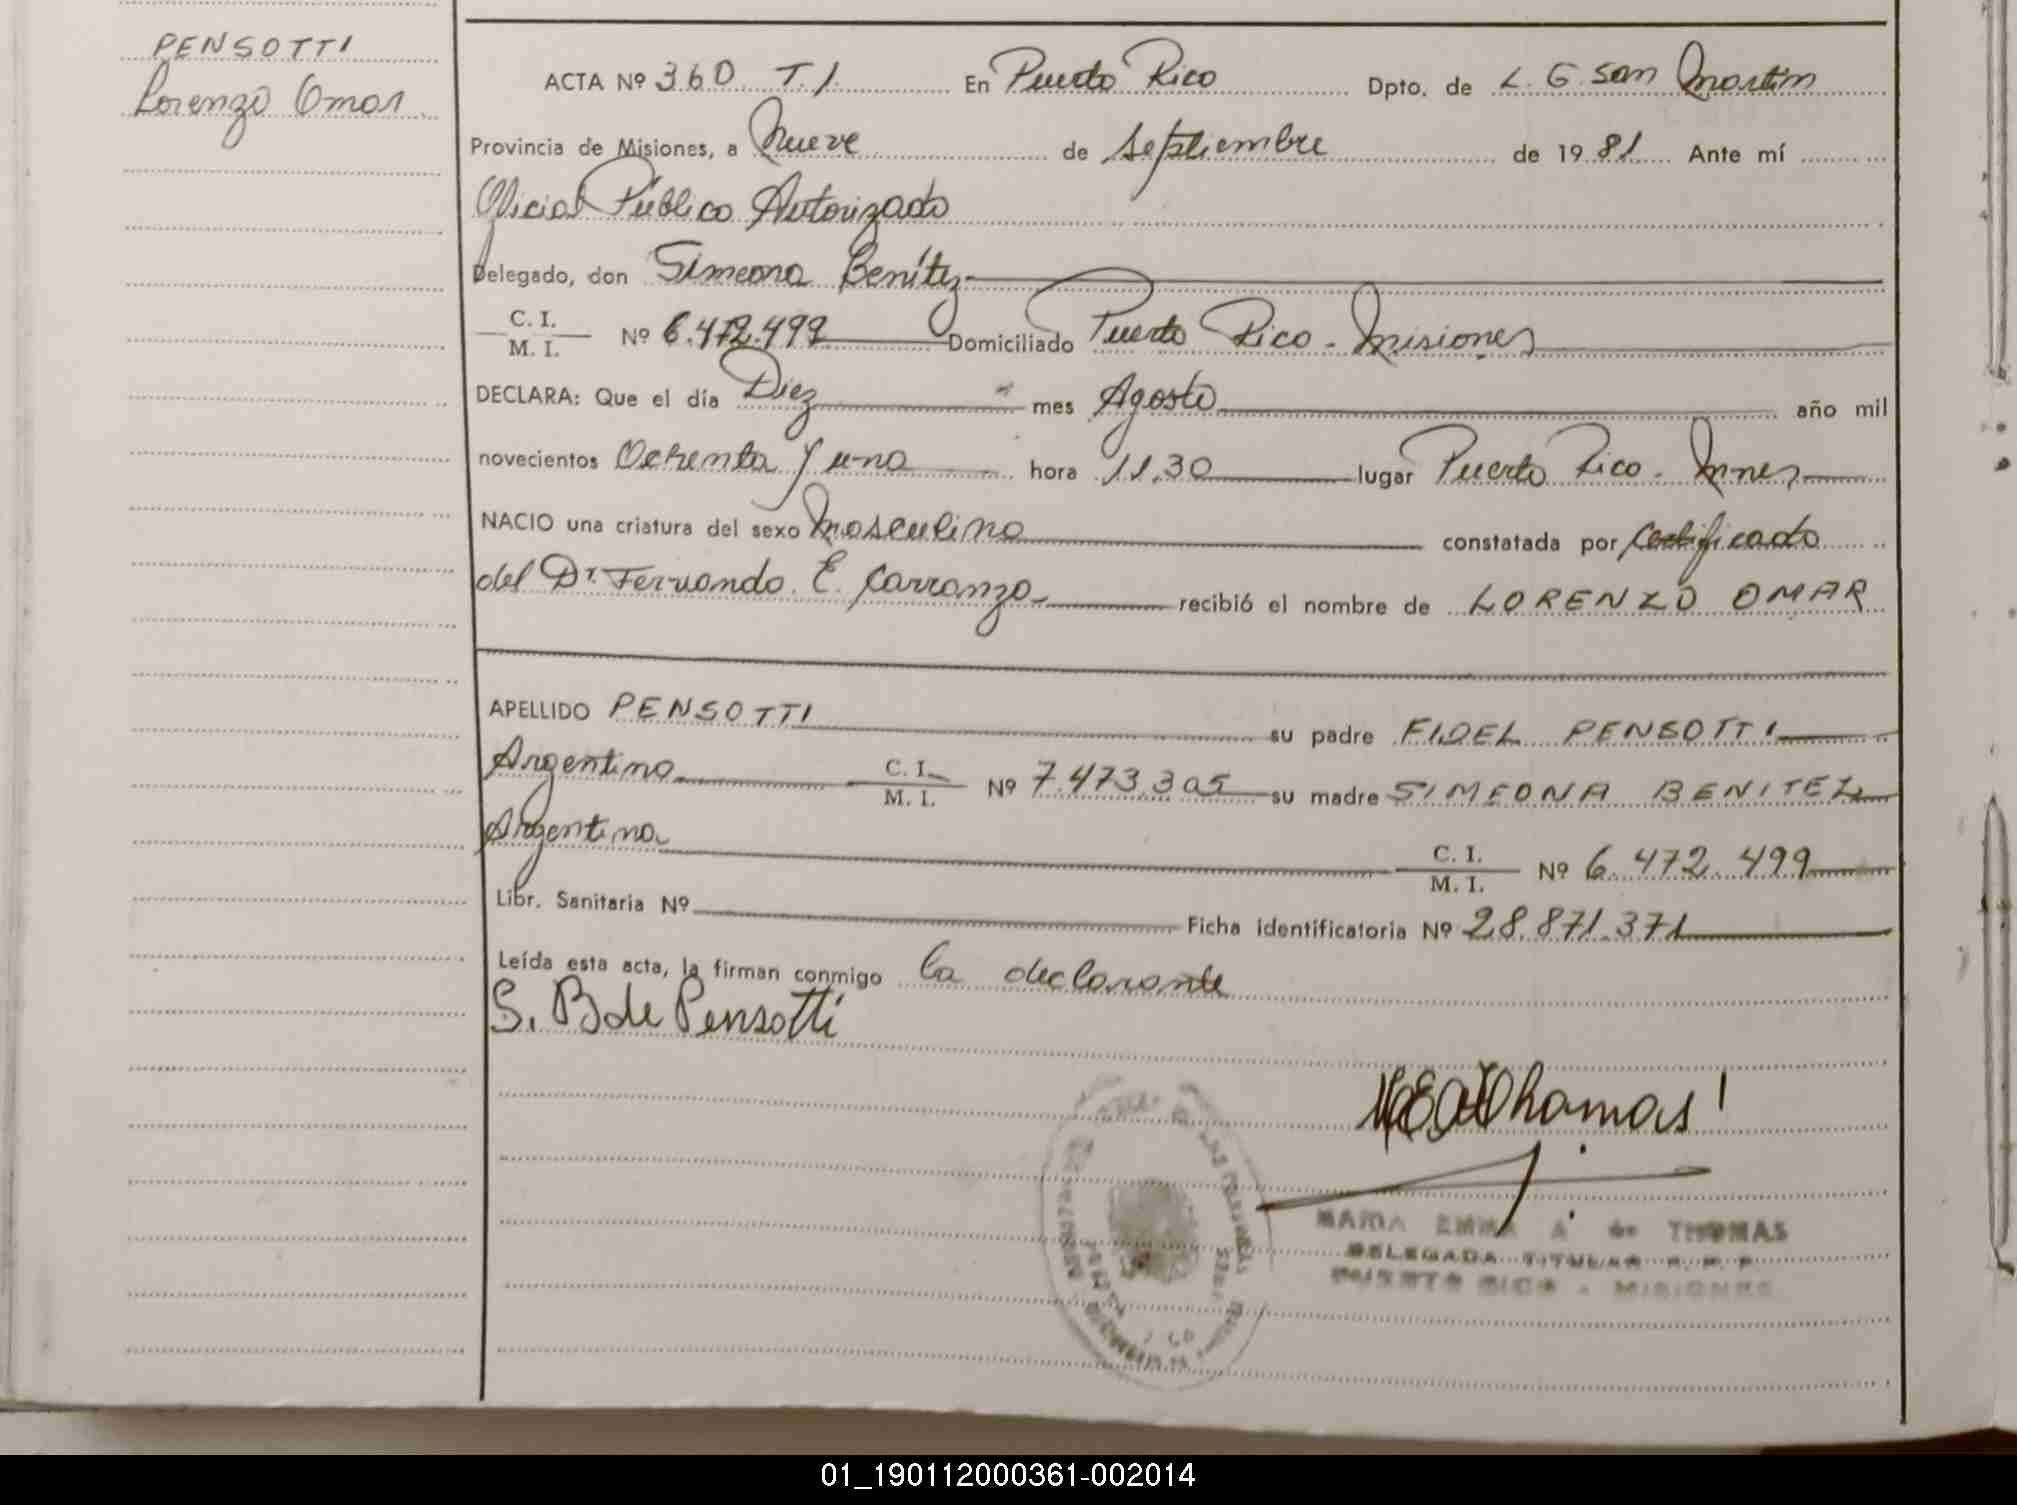 PENSOTTI
Lorenzo Omar
ACTA Nº 360 T. I. En Puerto Rico Dpto. de L. G. San Martin
Provincia de Misiones, a Nueve de Septiembre de 1981 Ante mí
Oficial Público Autorizado
Delegado, don Simeona Benítez
C. I.
M. I. Nº 6.472.499 Domiciliado Puerto Rico - Misiones
DECLARA: Que el día Diez mes Agosto año mil
novecientos Ochenta y uno hora 11,30 lugar Puerto Rico - Mnes
NACIO una criatura del sexo Masculino constatada por certificado
del Dr. Fernando E. Carranza recibió el nombre de LORENZO OMAR
APELLIDO PENSOTTI su padre FIDEL PENSOTTI
Argentino C. I.
M. I. Nº 7.473.305 su madre SIMEONA BENITEZ
Argentina C. I.
M. I. Nº 6.472.499
Libr. Sanitaria Nº Ficha identificatoria Nº 28.871.371
Leída esta acta, la firman conmigo la declarante
S. B de Pensotti
MARIA EMMA A de THOMAS
DELEGADA TITULAR R. P. P.
PUERTO RICO - MISIONES
01_190112000361-002014